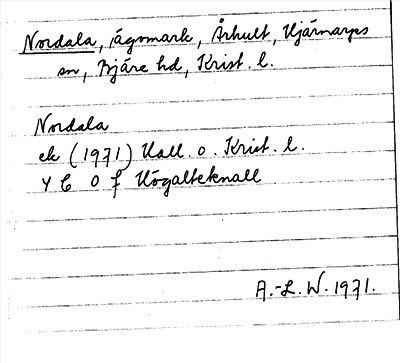 Nordala, ägomark, Århult, Hjärnarps
sn, Bjäre hd, Krist. l.
Nordala
ek (1971) Hall. o. Krist. l.
4 C 0 f Högalteknall
A.-L. W. 1971.